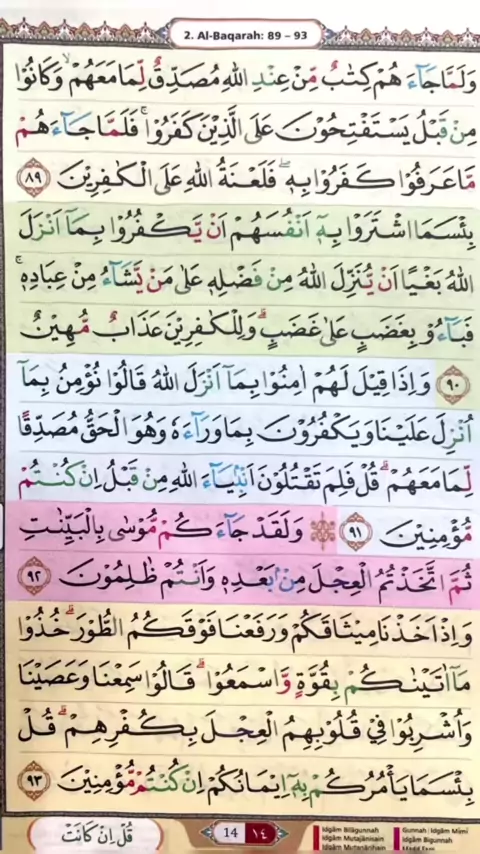 2. Al-Baqarah: 89 – 93
وَلَمَّا جَاۤءَهُمْ كِتٰبٌ مِّنْ عِنْدِ اللّٰهِ مُصَدِّقٌ لِّمَا مَعَهُمْۙ وَكَانُوْا
مِنْ قَبْلُ يَسْتَفْتِحُوْنَ عَلَى الَّذِيْنَ كَفَرُوْاۚ فَلَمَّا جَاۤءَهُمْ
مَّا عَرَفُوْا كَفَرُوْا بِهٖۖ فَلَعْنَةُ اللّٰهِ عَلَى الْكٰفِرِيْنَ ٨٩
بِئْسَمَا اشْتَرَوْا بِهٖٓ اَنْفُسَهُمْ اَنْ يَّكْفُرُوْا بِمَآ اَنْزَلَ
اللّٰهُ بَغْيًا اَنْ يُّنَزِّلَ اللّٰهُ مِنْ فَضْلِهٖ عَلٰى مَنْ يَّشَاۤءُ مِنْ عِبَادِهٖۚ
فَبَاۤءُوْ بِغَضَبٍ عَلٰى غَضَبٍۗ وَلِلْكٰفِرِيْنَ عَذَابٌ مُّهِيْنٌ
٩٠ وَاِذَا قِيْلَ لَهُمْ اٰمِنُوْا بِمَآ اَنْزَلَ اللّٰهُ قَالُوْا نُؤْمِنُ بِمَآ
اُنْزِلَ عَلَيْنَا وَيَكْفُرُوْنَ بِمَا وَرَاۤءَهٗ وَهُوَ الْحَقُّ مُصَدِّقًا
لِّمَا مَعَهُمْۗ قُلْ فَلِمَ تَقْتُلُوْنَ اَنْۢبِيَاۤءَ اللّٰهِ مِنْ قَبْلُ اِنْ كُنْتُمْ
مُّؤْمِنِيْنَ ٩١ ۞ وَلَقَدْ جَاۤءَكُمْ مُّوْسٰى بِالْبَيِّنٰتِ
ثُمَّ اتَّخَذْتُمُ الْعِجْلَ مِنْۢ بَعْدِهٖ وَاَنْتُمْ ظٰلِمُوْنَ ٩٢
وَاِذْ اَخَذْنَا مِيْثَاقَكُمْ وَرَفَعْنَا فَوْقَكُمُ الطُّوْرَۗ خُذُوْا
مَآ اٰتَيْنٰكُمْ بِقُوَّةٍ وَّاسْمَعُوْاۗ قَالُوْا سَمِعْنَا وَعَصَيْنَا
وَاُشْرِبُوْا فِيْ قُلُوْبِهِمُ الْعِجْلَ بِكُفْرِهِمْۗ قُلْ
بِئْسَمَا يَأْمُرُكُمْ بِهٖٓ اِيْمَانُكُمْ اِنْ كُنْتُمْ مُّؤْمِنِيْنَ ٩٣
قُلْ اِنْ كَانَتْ
14 ١٤
Idgām Bilāgunnah
Idgām Mutajānisain
Idgām Mutaqāribain
Gunnah
Idgām Mimi
Idgām Bigunnah